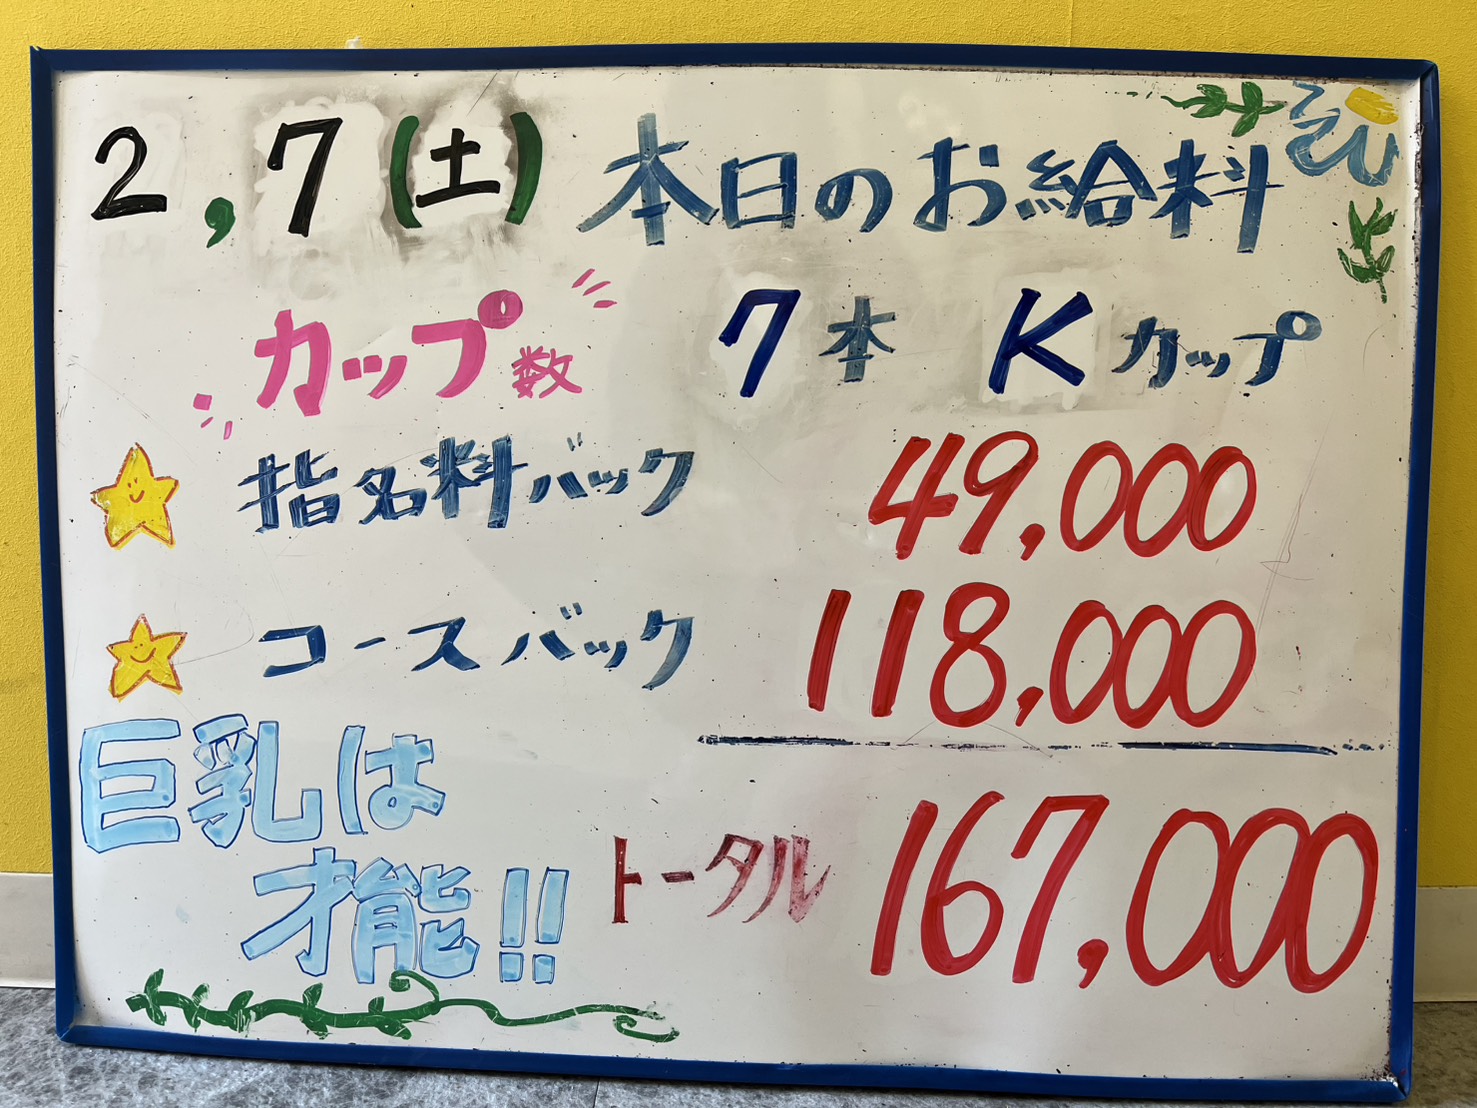 2,7(土) 本日のお給料
カップ数 7本 Kカップ
指名料バック 49,000
コースバック 118,000
巨乳は
才能!!
トータル 167,000